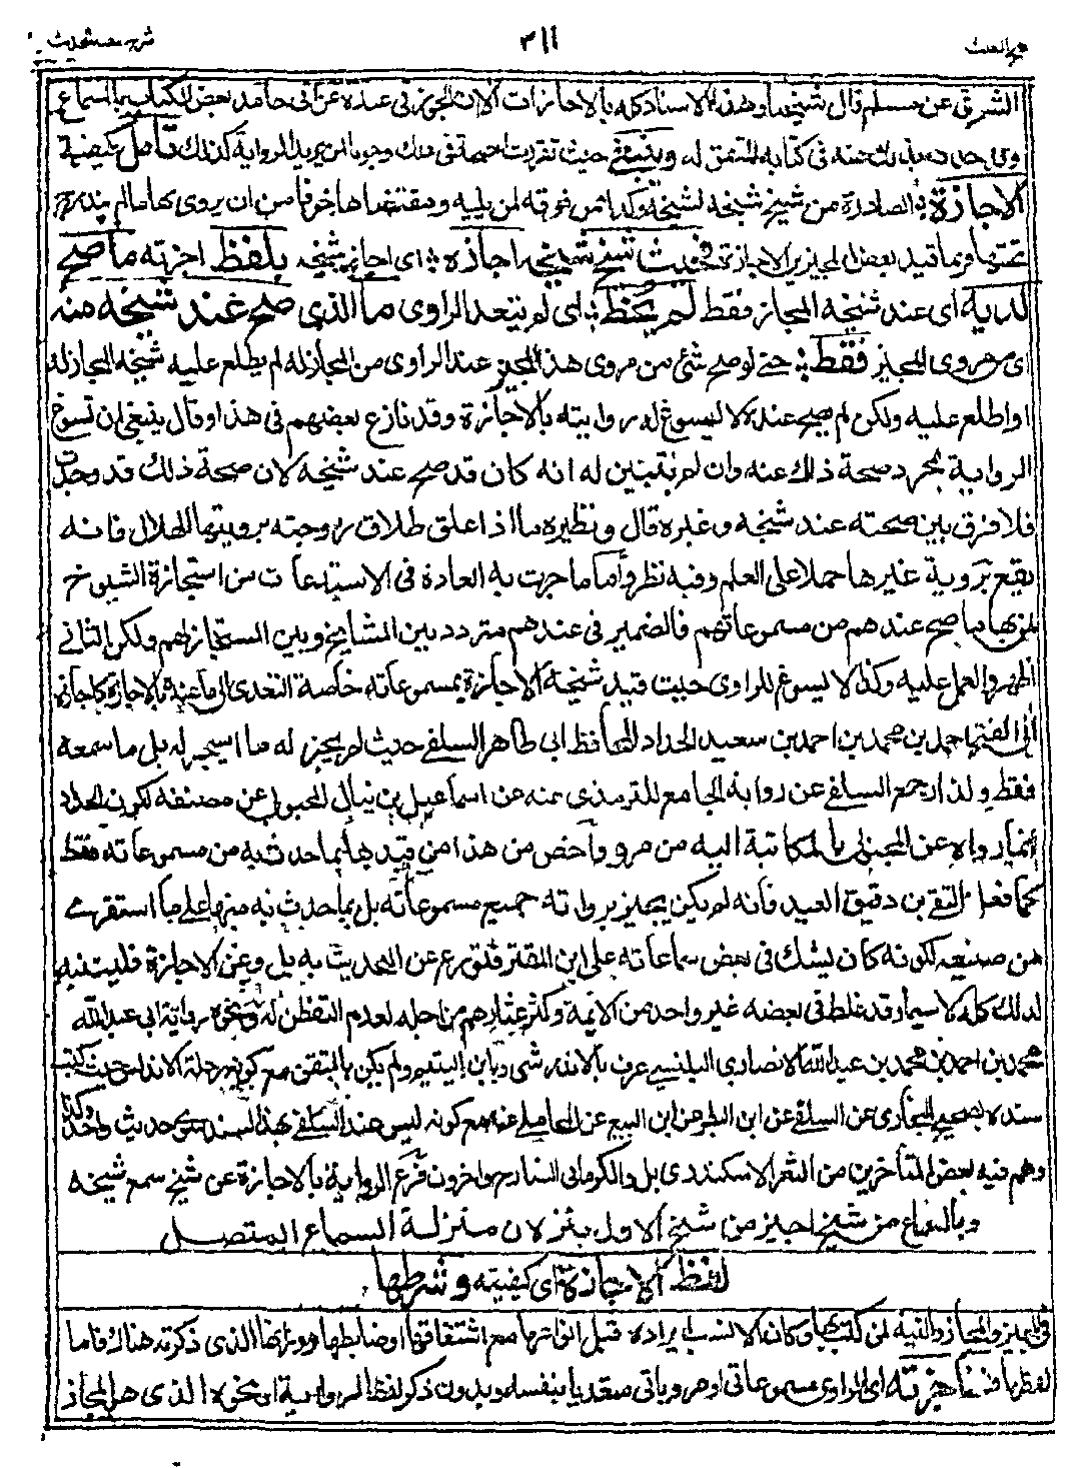 ٢١١
الشرقي عن مسلم قال شيخنا وهذا الاسناد كله بالاجازات الا ان الجوزقي عنده عن ابي حامد بعض الكتاب بالسماع
وينبغي حيث تقررت الصحة في ذلك وجوبا لمن يريد الرواية كذلك تأمل كيفية
الاجازة الصادرة من شيخ شيخه لشيخه وكذا ممن فوقه لمن يليه ومقتضاها خوفا من ان يروي بها ما لم يندرج
تحتها فربما قيد بعض المجيزين الاجازة فحيث شيخ شيخه اجازه اي اجاز شيخه بلفظ اجزته ما صح
لديه اي عند شيخه المجاز فقط لم يخط اي لم يتعد الراوي ما الذي صح عند شيخه منه
اي من مروي المجيز فقط حتى لو صح شئ من مروي هذا المجيز عند الراوي من المجاز له لم يطلع عليه شيخه المجاز له
او اطلع عليه ولكن لم يصح عنده لا يسوغ له روايته بالاجازة وقد نازع بعضهم في هذا وقال ينبغي ان تسوغ
الرواية بمجرد صحة ذلك عنه وان لم يتبين له انه كان قد صح عند شيخه لان صحة ذلك قد وجدت
فلا فرق بين صحته عند شيخه وغيره قال ونظيره ما اذا علق طلاق زوجته برويتها الهلال فانه
يقع بروية غيرها حملا على العلم وفيه نظر وأما ما جرت به العادة في الاستدعآت من استجازة الشيوخ
ما صح عندهم من مسموعاتهم فالضمير في عندهم متردد بين المشايخ وبين المستجاز لهم ولكن الثاني
اظهر والعمل عليه وكذا لا يسوغ للراوي حيث قيد شيخه الاجازة بمسموعاته خاصة التعدي الى ما عنده بالاجازة كاجازة
ابي الفتح احمد بن محمد بن احمد بن سعيد الحداد للحافظ ابي طاهر السلفي حيث لم يجز له ما استجيز له بل ما سمعه
فقط ولذا رجع السلفي عن رواية الجامع للترمذي عنه عن اسماعيل بن ينال المحبوبي عن مصنفه لكون الحداد
انما رواه عن المحبوبي بالمكاتبة اليه من مرو وأخص من هذا من قيدها بما حدث به من مسموعاته فقط
كما فعل التقي بن دقيق العيد فانه لم يكن يجيز برواية جميع مسموعاته بل بما حدث به منها على ما استقرئ
من صنيعه لكونه كان يشك في بعض سماعاته على ابن المقير فتورع عن التحديث به بل وعن الاجازة فليتنبه
لذلك كله لا سيما وقد غلط في بعضه غير واحد من الائمة وكثر عثارهم من اجله لعدم التفطن له ونحوه رواية ابي عبد الله
محمد بن احمد بن محمد بن عبد الله الانصاري البلنسي عرف بالاندرشي وبابن اليتيم ولم يكن بالمتقن مع كونه رحلة الاندلس حيث كتب
سنده بصحيح البخاري عن السلفي عن ابن البطر عن ابن البيع عن المحاملي عنه مع كونه ليس عند السلفي بهذا السند سوى حديث واحد وكذا
وهم فيه بعض المتأخرين من الثغر الاسكندري بل والكرماني الشارح واخرون فرع الرواية بالاجازة عن شيخ سمع شيخه
وبالسماع من شيخ اجيز من شيخ الاول ينزلان منزلة السماع المتصل
لفظ الاجازة اي كيفيته وشرطها
في المجيز والمجاز والنية لمن كتب بها وكان الانسب ايراده قبل انواعها مع اشتقاقها وضابطها الذي ذكرته هناك فاما
لفظها اجزته اي الراوي مسموعاتي او مروياتي متعديا بنفسه وبدون ذكر لفظ الرواية او نحوه الذي هو المجاز